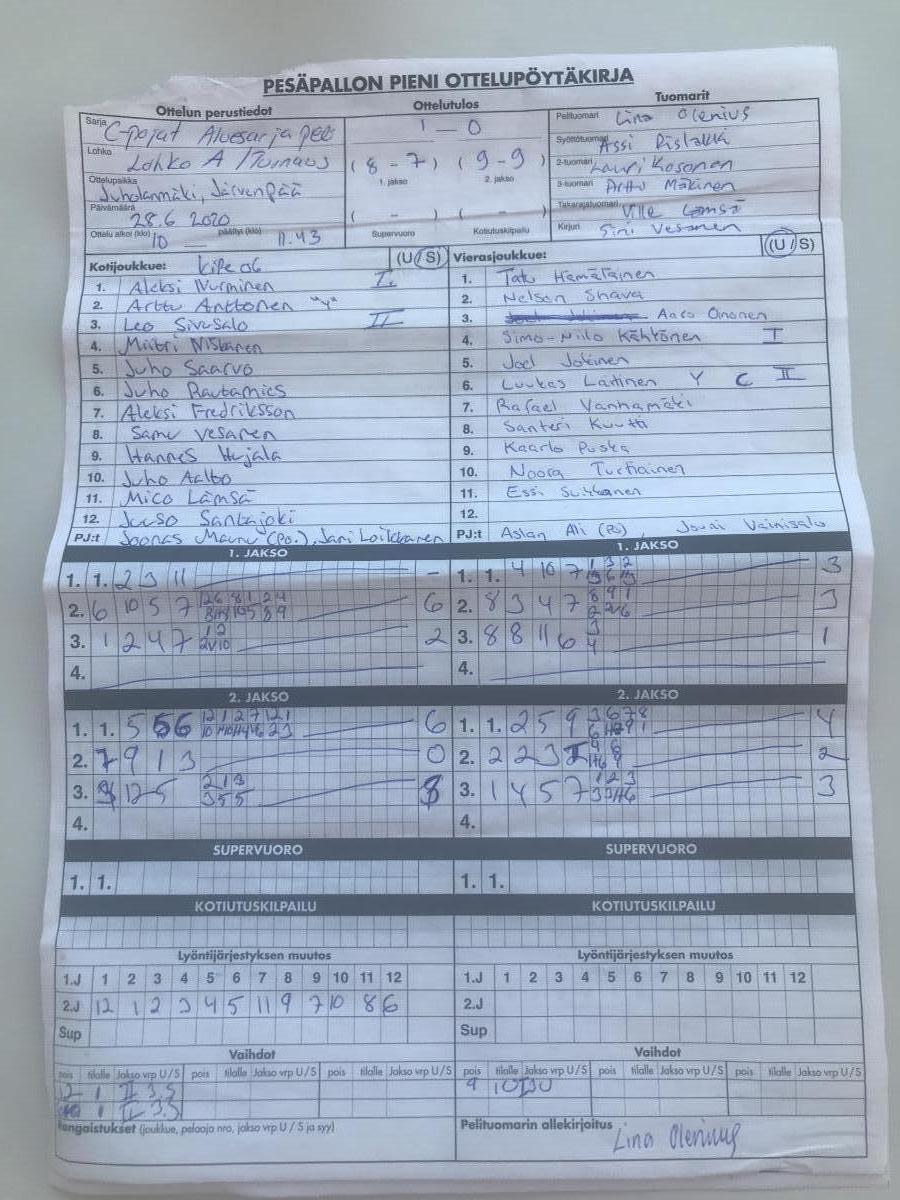 PESÄPALLON PIENI OTTELUPÖYTÄKIRJA
Ottelun perustiedot
Sarja C-pojat Aluesarja
Lohko Lohko A / Turnaus
Ottelupaikka Juholanmäki, Järvenpää
Päivämäärä 28.6 2020
Ottelu alkoi (klo) 10 päättyi (klo) 11.43
Ottelutulos
1 - 0
(8 - 7) (9 - 9)
1. jakso 2. jakso
( - ) ( - )
Supervuoro Kotiutuskilpailu
Tuomarit
Pelituomari Lina Olenius
Syöttötuomari Assi
2-tuomari Lauri Kosonen
3-tuomari Arttu Mäkinen
Takarajatuomari Ville Lämsä
Kirjuri Sini Vesanen
Kotijoukkue: Kipe 06 (U/S)
1. Aleksi Nurminen I
2. Arttu Anttonen "Y"
3. Leo Sivusalo II
4. Miitri Niskanen
5. Juho Saarvo
6. Juho Rautamies
7. Aleksi Fredriksson
8. Samu Vesanen
9. Hannes Hujala
10. Juho Aalto
11. Mico Lämsä
12. Juuso Santajoki
PJ:t Joonas (Po.), Jani Loikkanen
Vierasjoukkue: (U/S)
1. Tatu Hämäläinen
2. Nelson Shava
3. Aaro Oinonen
4. Simo-Niilo Kähkönen I
5. Joel Jokinen
6. Luukas Laitinen Y C II
7. Rafael Vanhamäki
8. Santeri Kuutti
9. Kaarlo Puska
10. Noora Turtiainen
11. Essi Suikkanen
12.
PJ:t Aslan Ali (Po), Jouni Vainisalo
1. JAKSO
1. 1. 2 3 11 -
2. 6 10 5 7 6
3. 1 2 4 7 2
4.
1. JAKSO
1. 1. 4 10 7 3
2. 8 3 4 7 3
3. 8 8 11 6 1
4.
2. JAKSO
1. 1. 5 6
2. 7 9 1 3 0
3. 12 5
4.
2. JAKSO
1. 1. 2 5 9 4
2. 2 2 3 2
3. 1 4 5 7 3
4.
SUPERVUORO
1. 1.
SUPERVUORO
1. 1.
KOTIUTUSKILPAILU
KOTIUTUSKILPAILU
Lyöntijärjestyksen muutos
1.J 1 2 3 4 5 6 7 8 9 10 11 12
2.J 12 1 2 3 4 5 11 9 7 10 8 6
Sup
Lyöntijärjestyksen muutos
1.J 1 2 3 4 5 6 7 8 9 10 11 12
2.J
Sup
Vaihdot
pois tilalle Jakso vrp U/S pois tilalle Jakso vrp U/S pois tilalle Jakso vrp U/S
2 1 II 3.S
1 II 3.S
Vaihdot
pois tilalle Jakso vrp U/S pois tilalle Jakso vrp U/S pois tilalle Jakso vrp U/S
9
Rangaistukset (joukkue, pelaaja nro, jakso vrp U / S ja syy)
Pelituomarin allekirjoitus Lina Olenius